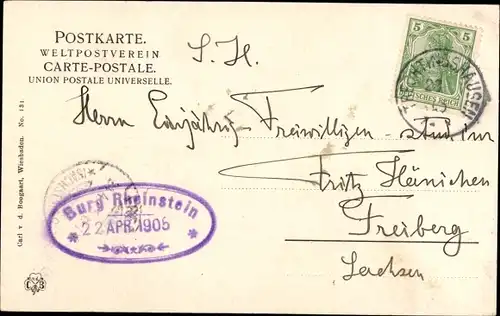 POSTKARTE.
WELTPOSTVEREIN
CARTE-POSTALE.
UNION POSTALE UNIVERSELLE.
S. H.
5 5
DEUTSCHES REICH
Herrn Einjährig-Freiwilligen
Fritz Hänichen
Freiberg
Sachsen
Burg Rheinstein
22 APR. 1905
Carl v. d. Boogaart, Wiesbaden. No. 131